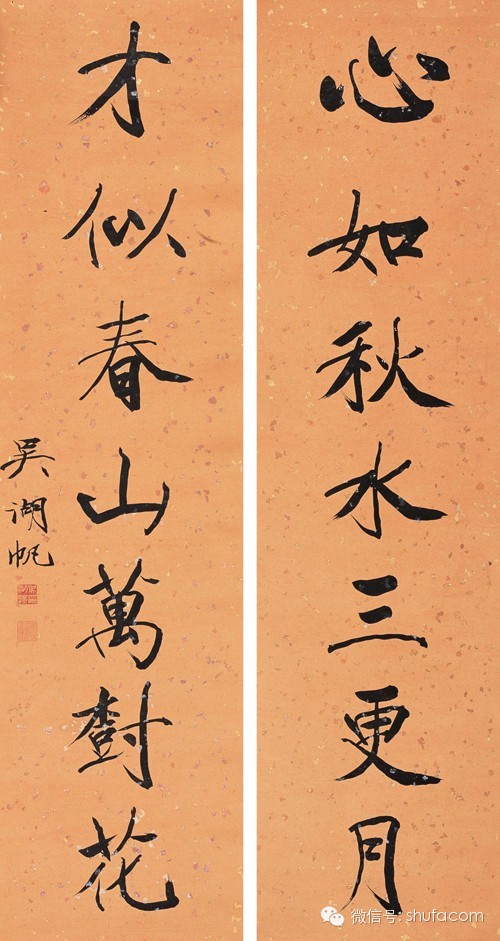 心如秋水三更月
才似春山萬樹花
吳湖帆
微信号: shufacom